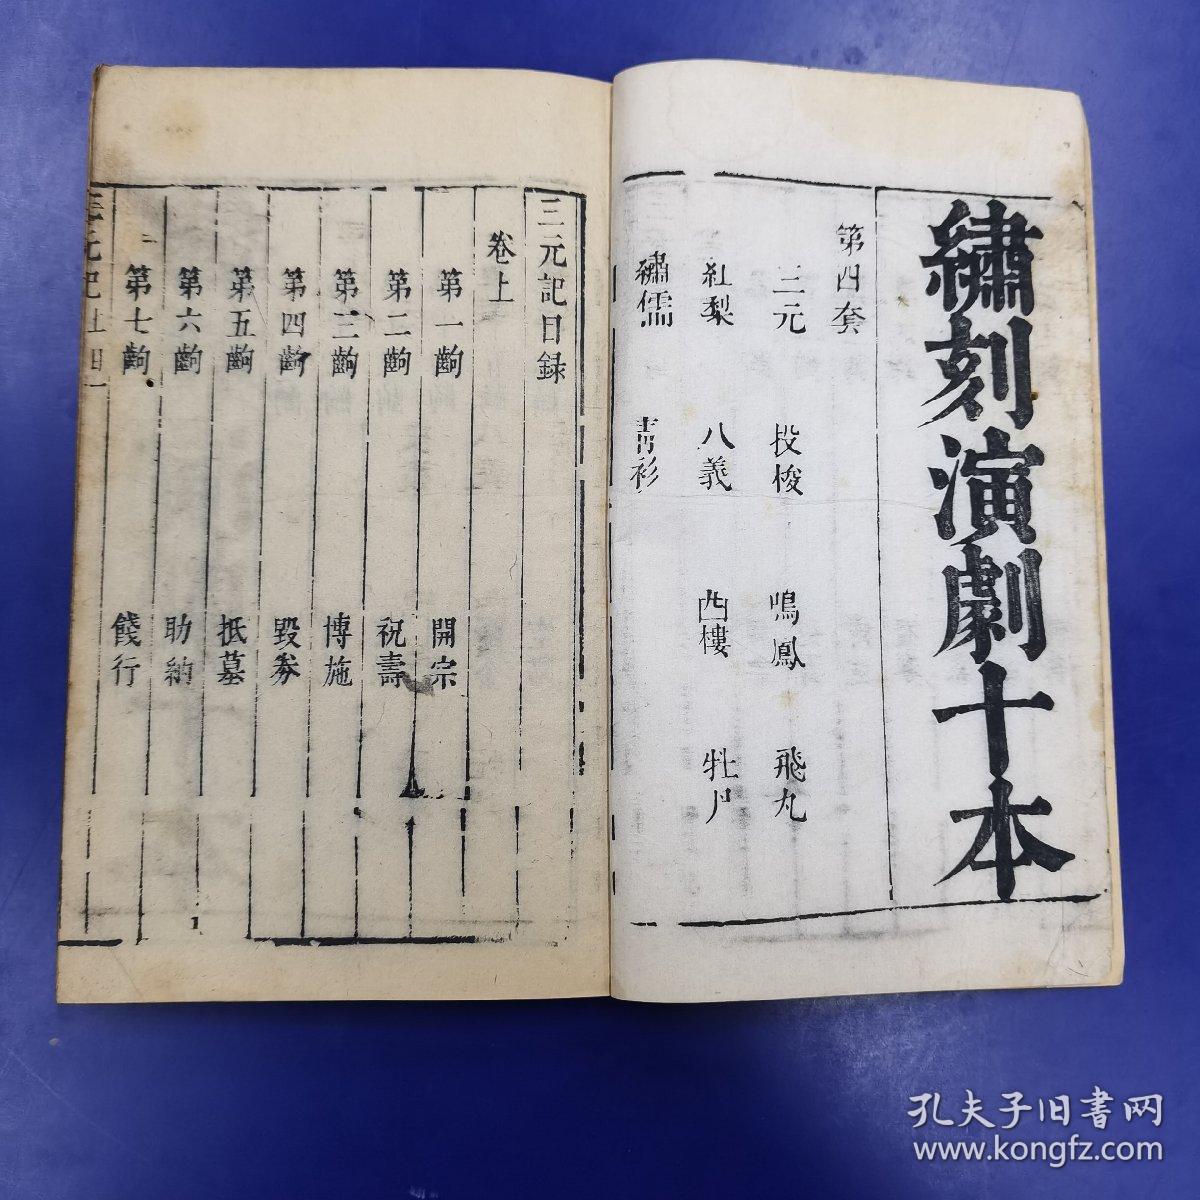 繡刻演劇十本
第四套
三元 投梭 鳴鳳 飛丸
紅梨 八義 西樓 牡丹
繡襦 青衫
三元記目錄
卷上
第一齣 開宗
第二齣 祝壽
第三齣 博施
第四齣 毀券
第五齣 抵墓
第六齣 助納
第七齣 餞行
三元記上目
孔夫子旧书网
www.kongfz.com